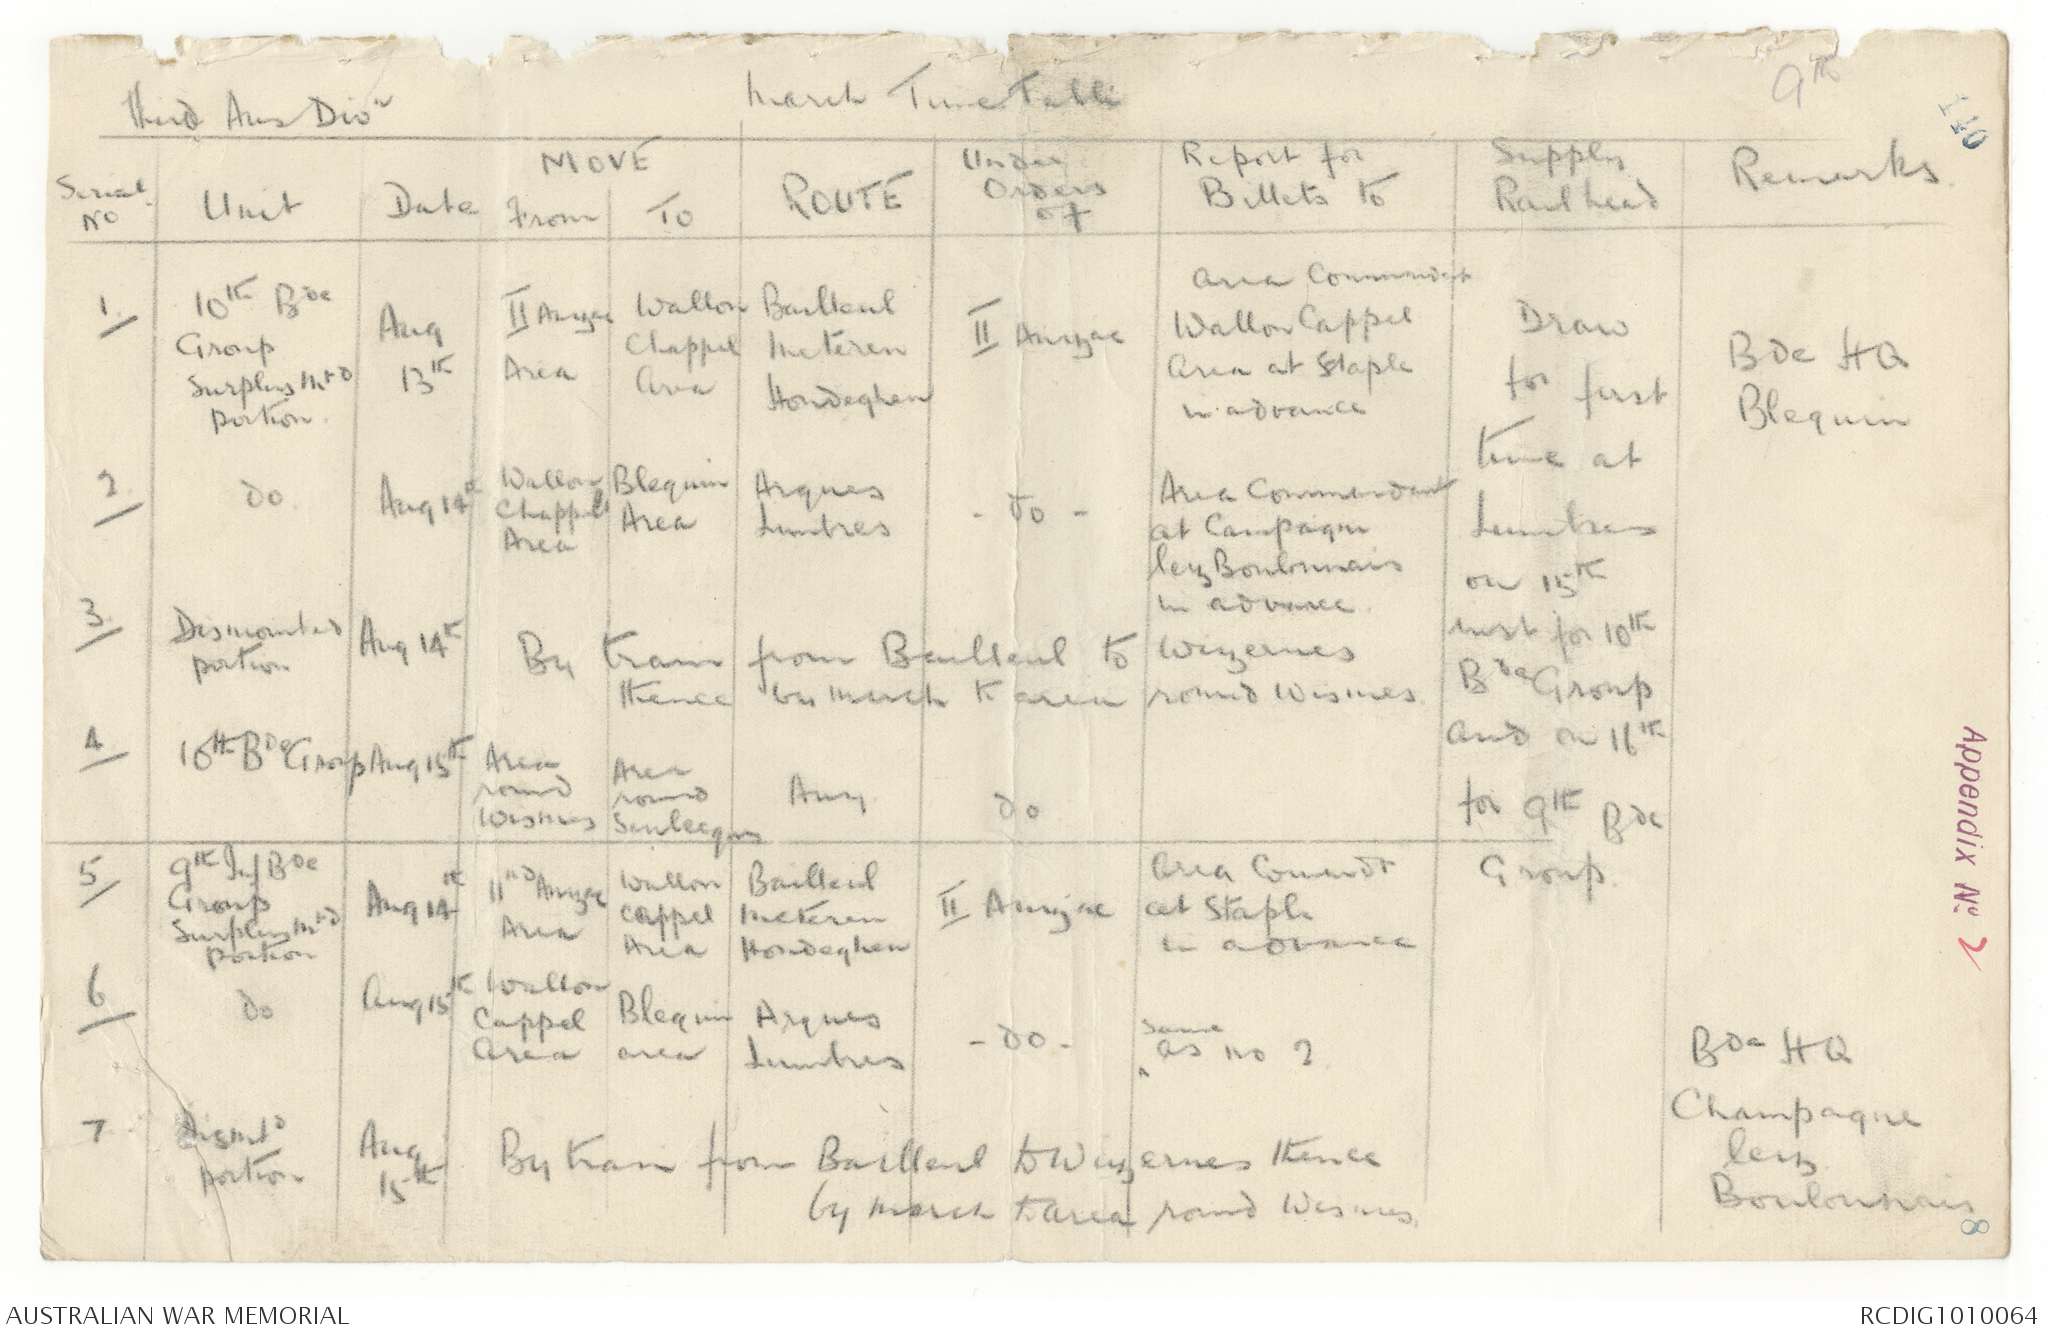 9th
110
Third Aus Divn
March Time Table
Serial No
Unit
Date
MOVE
From
To
ROUTE
Under Orders of
Report for Billets to
Supply Railhead
Remarks
1.
10th Bde
Group
Surplus Mtd
portion.
Aug
13th
II Anzac
Area
Wallon
Chappel
Area
Bailleul
Meteren
Hondeghem
II Anzac
Area Commandant
Wallon Cappel
Area at Staple
in advance
Draw
for first
time at
Lumbres
on 15th
inst for 10th
Bde Group
and on 16th
for 9th Bde
Group.
Bde HQ
Blequin
2.
Do.
Aug 14th
Wallon
Chappel
Area
Blequin
Area
Arques
Lumbres
- Do -
Area Commandant
at Campaign
lez Boulonnais
in advance.
3.
Dismounted
portion
Aug 14th
By train from Bailleul to Wizernes
thence by march to area round Wismes.
4
10th Bde Group
Aug 15th
Area
round
Wismes
Area
round
Senlecques
Any.
Do
5
9th Inf Bde
Group
Surplus Mtd
portion
Aug 14th
IInd Anzac
Area
Wallon
Cappel
Area
Bailleul
Meteren
Hondeghem
II Anzac
Area Comandt
at Staple
in advance
6
Do
Aug 15th
Wallon
Cappel
Area
Blequin
area
Arques
Lumbres
- Do -
same
as no 2.
Bde HQ
Champagne
lez
Boulonnais
7
Dismtd
portion
Aug
15th
By train from Bailleul to Wizernes thence
by march to area round Wismes.
Appendix No. 2
8
AUSTRALIAN WAR MEMORIAL
RCDIG1010064